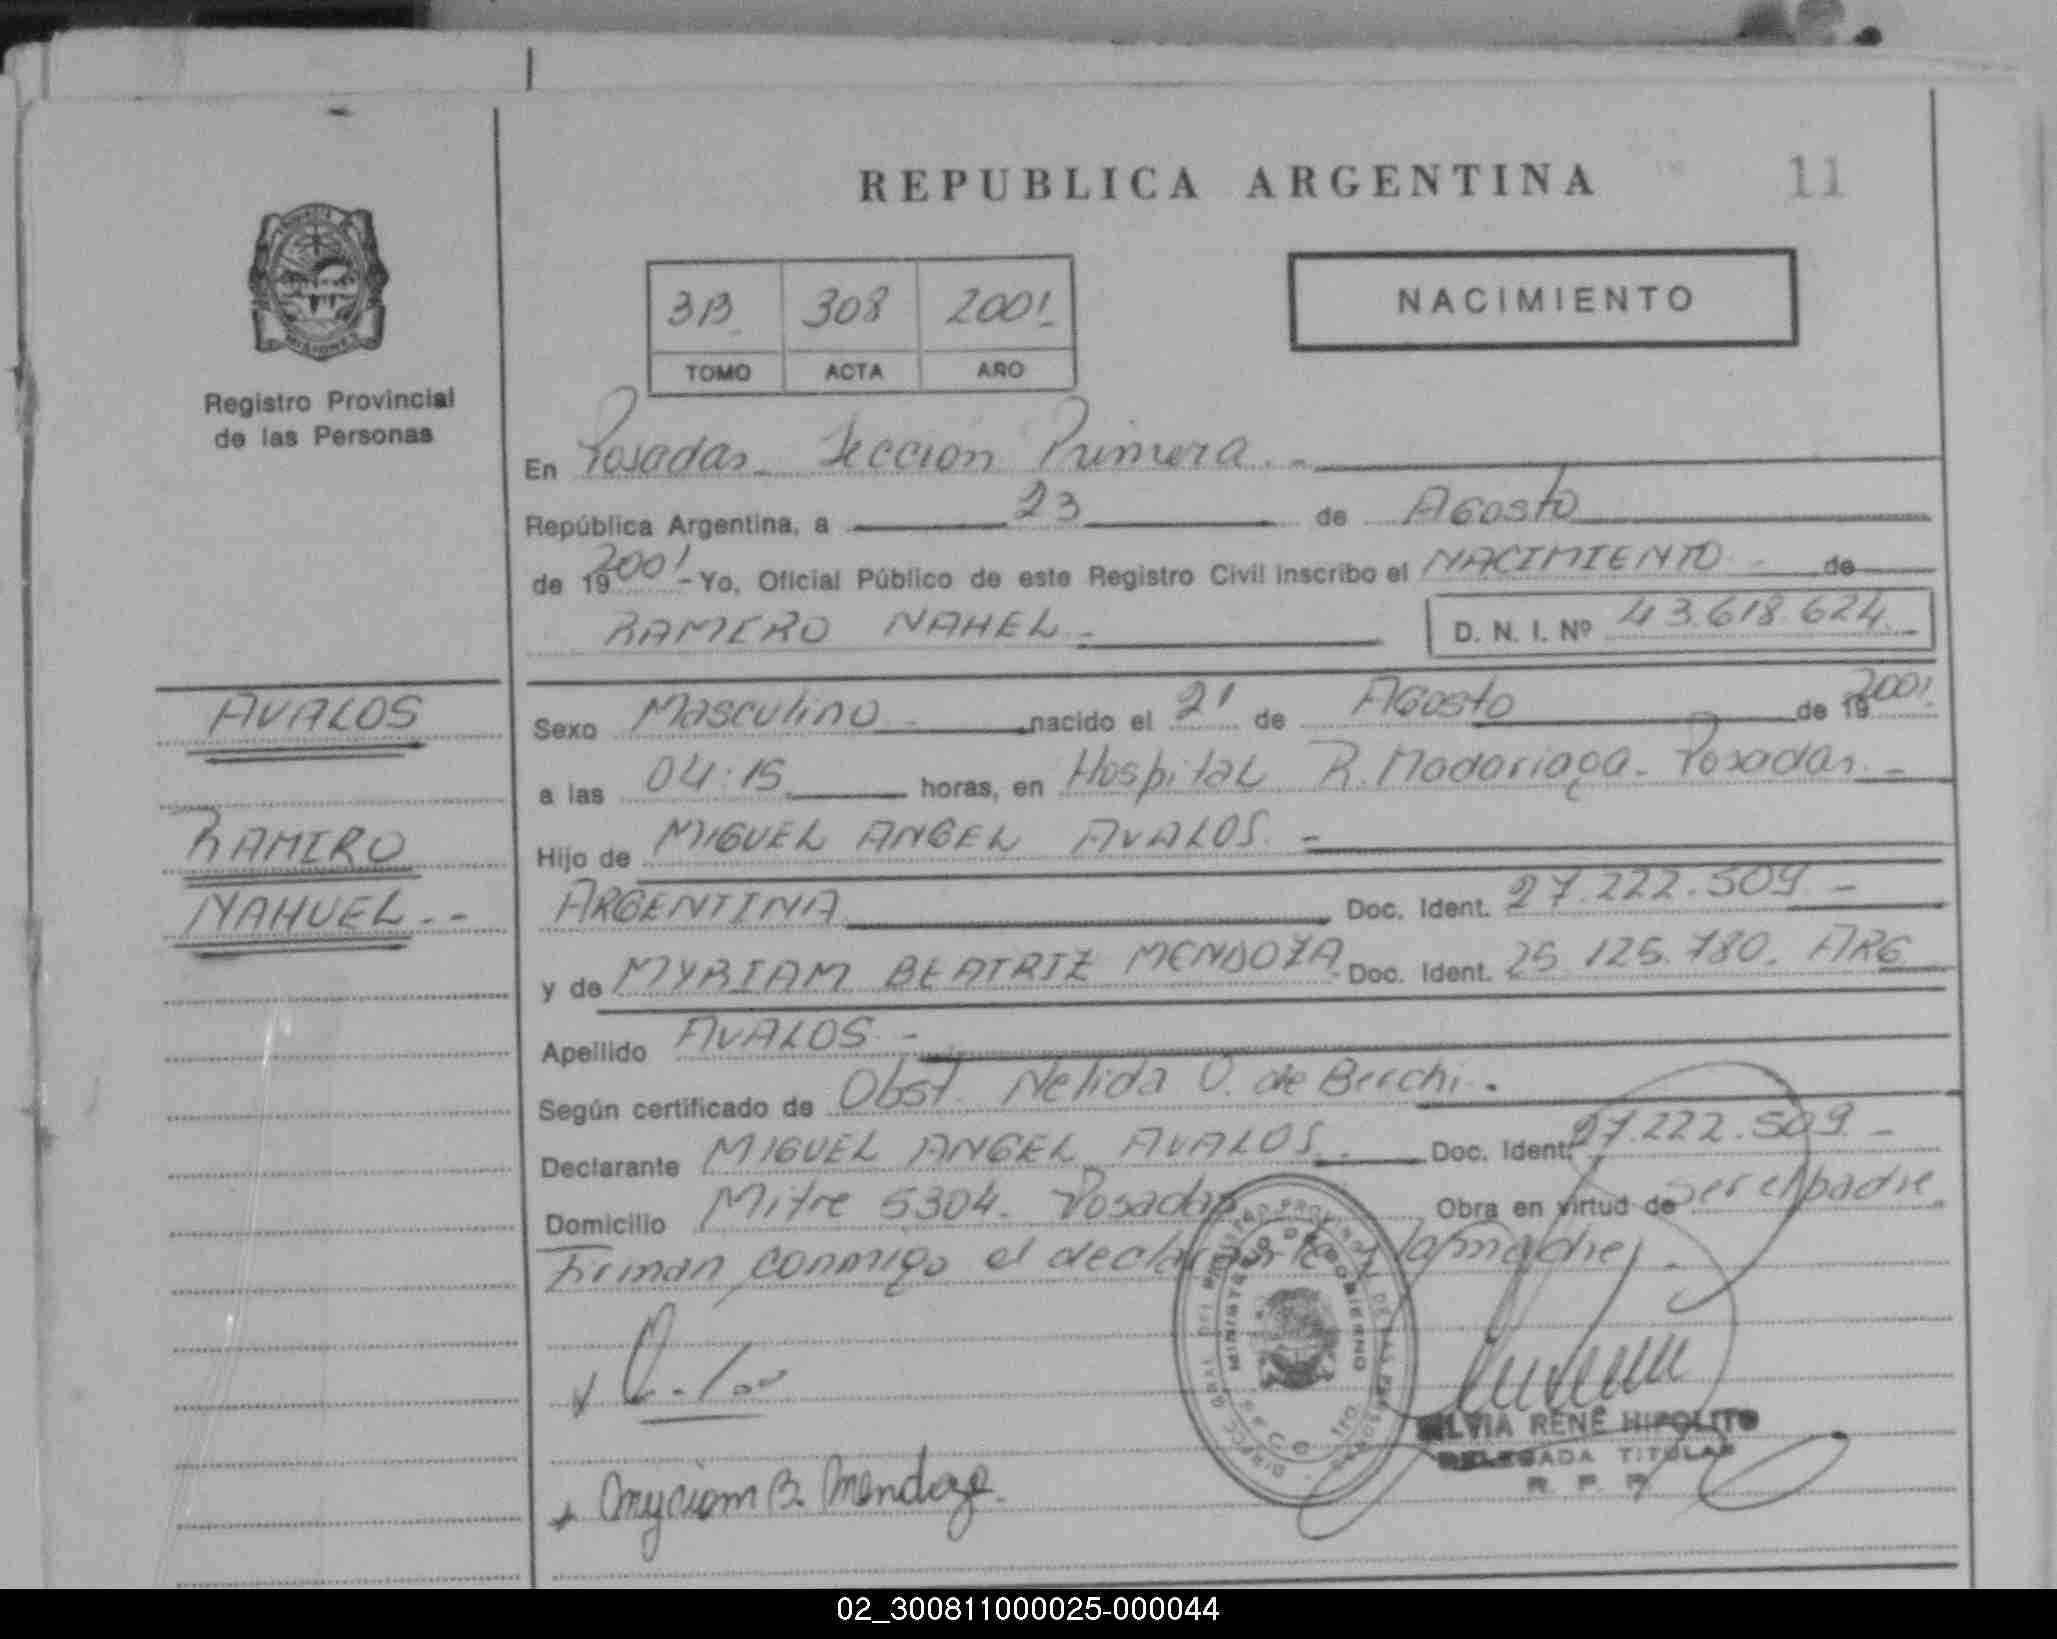 REPUBLICA ARGENTINA 11
3B 308 2001
TOMO ACTA AÑO
NACIMIENTO
MISIONES
Registro Provincial
de las Personas
En Posadas Sección Primera.-
República Argentina, a 23 de Agosto
de 19 2001 - Yo, Oficial Público de este Registro Civil inscribo el NACIMIENTO de
RAMIRO NAHEL.- D. N. I. Nº 43.618.624.-
AVALOS
RAMIRO
NAHUEL.--
Sexo Masculino nacido el 21 de Agosto de 19 2001
a las 04:15 horas, en Hospital R. Madariaga - Posadas.-
Hijo de MIGUEL ANGEL AVALOS.-
ARGENTINA Doc. Ident. 27.222.509-
y de MYRIAM BEATRIZ MENDOZA Doc. Ident. 25.125.780. ARG
Apellido AVALOS.-
Según certificado de Obst. Nelida O. de Berchi.
Declarante MIGUEL ANGEL AVALOS.- Doc. Ident. 27.222.509.-
Domicilio Mitre 5304. Posadas Obra en virtud de ser el padre
Firman conmigo el declarante y la madre.-
MINISTERIO DE GOBIERNO
Myriam B. Mendoza
SILVIA RENÉ HIPOLITO
DELEGADA TITULAR
R. P. P.
02_300811000025-000044